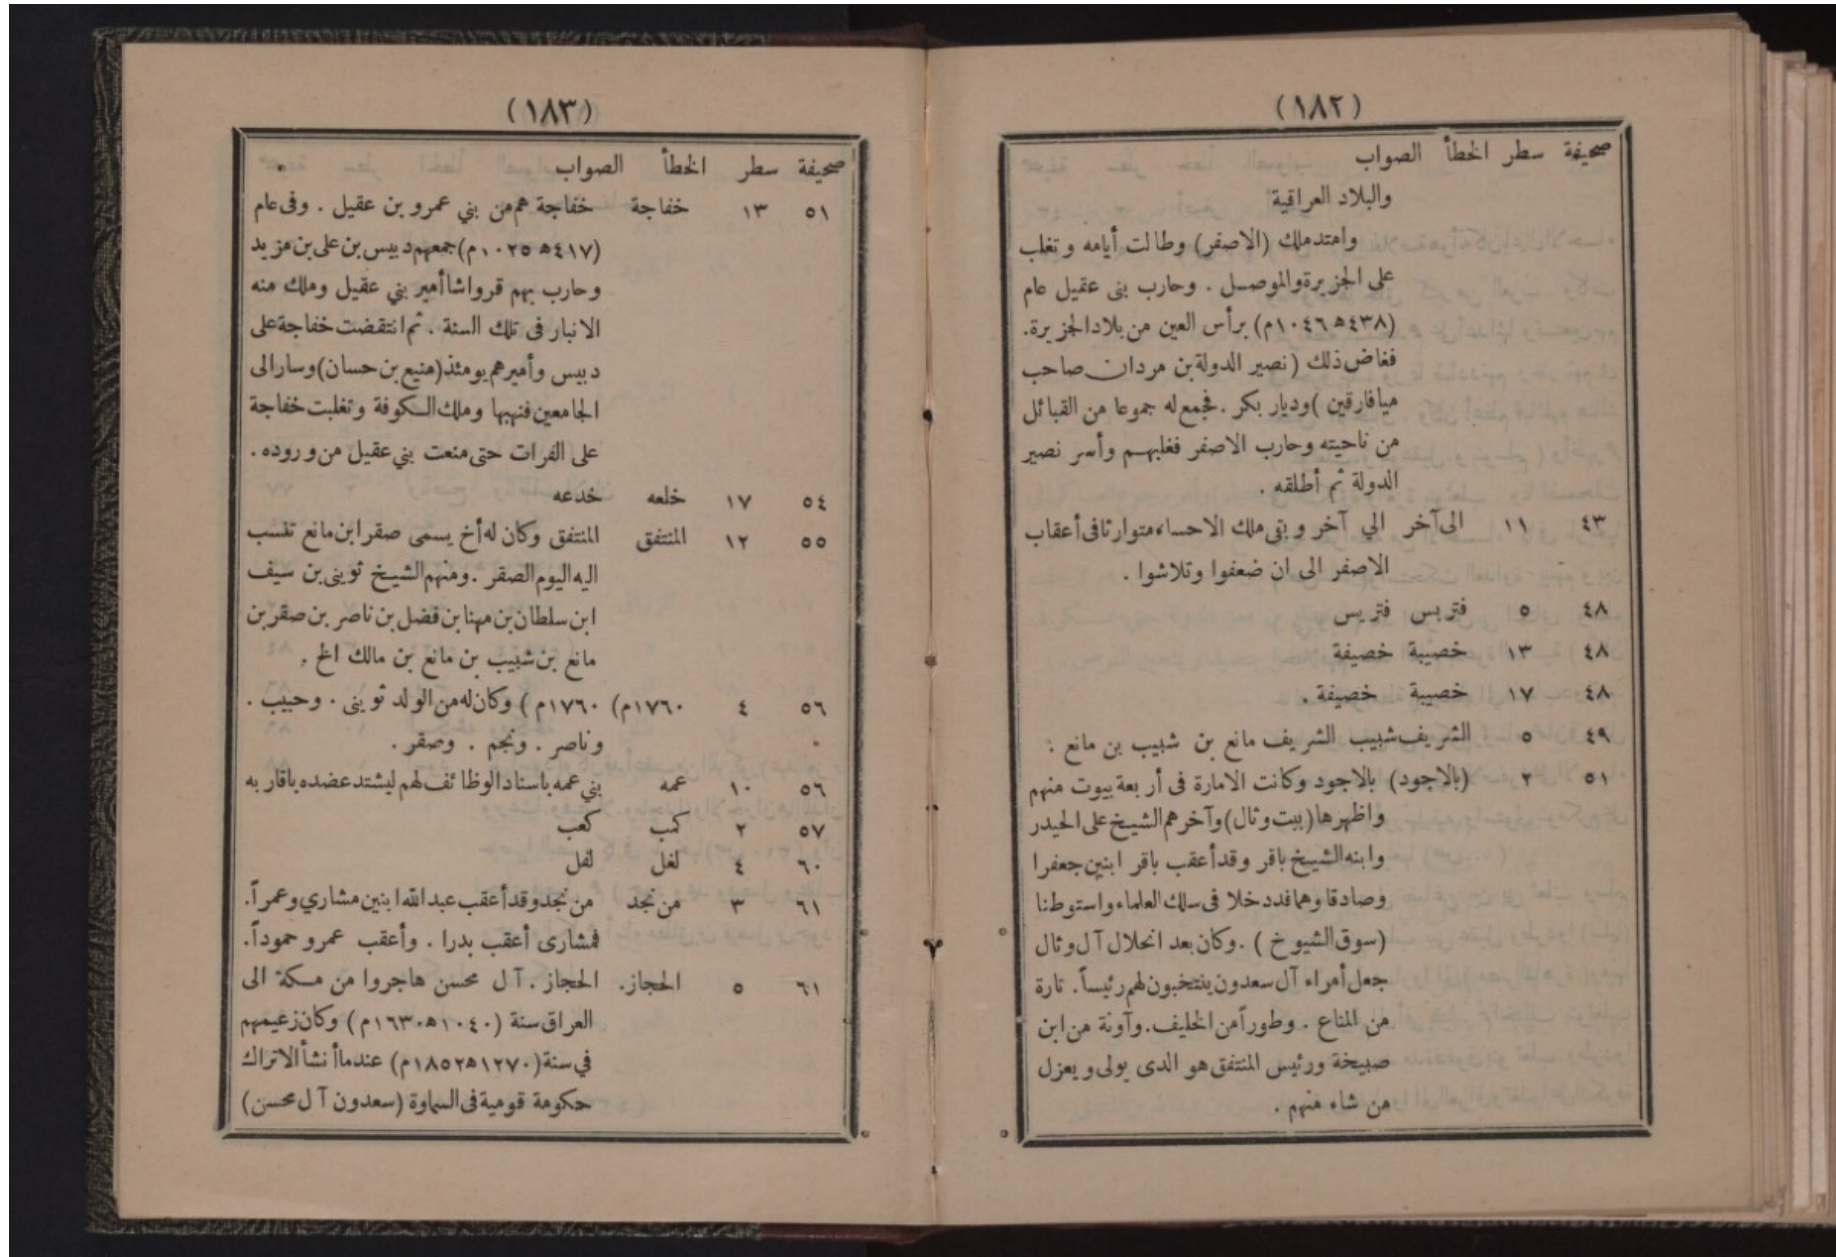 (١٨٢)
صحيفة سطر الخطأ الصواب
والبلاد العراقية
وامتد ملك (الاصفر) وطالت أيامه وتغلب
على الجزيرة والموصل . وحارب بنى عقيل عام
(٤٣٨ھ ١٠٤٦م) برأس العين من بلاد الجزيرة.
فغاض ذلك (نصير الدولة بن مردان صاحب
ميافارقين) وديار بكر . فجمع له جموعا من القبائل
من ناحيته وحارب الاصفر فغلبهم وأسر نصير
الدولة ثم أطلقه .
٤٣ ١١ الى آخر الي آخر وبقى ملك الاحساء متوارثا فى أعقاب
الاصفر الى ان ضعفوا وتلاشوا .
٤٨ ٥ فتربس فتريس
٤٨ ١٣ خصيبة خصيفة
٤٨ ١٧ خصيبة خصيفة .
٤٩ ٥ الشريف شبيب الشريف مانع بن شبيب بن مانع :
٥١ ٢ (بالاجود) بالاجود وكانت الامارة فى أربعة بيوت منهم
واظهرها (بيت وثال) وآخرهم الشيخ على الحيدر
وابنه الشيخ باقر وقد أعقب باقر ابنين جعفرا
وصادقا وهما قد دخلا فى سلك العلماء واستوطنا
(سوق الشيوخ) . وكان بعد انحلال آل وثال
جعل أمراء آل سعدون ينتخبون لهم رئيساً . تارة
من المناع . وطوراً من الخليف . وآونة من ابن
صبيخة ورئيس المنتفق هو الدى يولى ويعزل
من شاء منهم .
(١٨٣)
صحيفة سطر الخطأ الصواب
٥١ ١٣ خفاجة خفاجة هم من بني عمرو بن عقيل . وفى عام
(٤١٧ھ ١٠٢٥م) جمعهم دبيس بن على بن مزيد
وحارب بهم قرواشا أمير بني عقيل وملك منه
الانبار فى تلك السنة . ثم انتقضت خفاجة على
دبيس وأميرهم يومئذ (منيع بن حسان) وسار الى
الجامعين فنهبها وملك الكوفة وتغلبت خفاجة
على الفرات حتى منعت بني عقيل من وروده .
٥٤ ١٧ خلعه خدعه
٥٥ ١٢ المنتفق المنتفق وكان له أخ يسمى صقر ابن مانع تنسب
اليه اليوم الصقر . ومنهم الشيخ ثوينى بن سيف
ابن سلطان بن مهنا بن فضل بن ناصر بن صقر بن
مانع بن شبيب بن مانع بن مالك الخ .
٥٦ ٤ ١٧٦٠م) ١٧٦٠م) وكان له من الولد ثوينى . وحبيب .
وناصر . ونجم . وصقر .
٥٦ ١٠ عمه بني عمه باسناد الوظائف لهم ليشتد عضده باقاربه
٥٧ ٢ كب كعب
٦٠ ٤ لغل لفل
٦١ ٣ من نجد من نجد وقد أعقب عبد الله ابنين مشاري وعمراً .
فمشارى أعقب بدرا . وأعقب عمرو حموداً .
٦١ ٥ الحجاز. الحجاز . آل محسن هاجروا من مكة الى
العراق سنة (١٠٤٠ھ ١٦٣٠م) وكان زعيمهم
في سنة (١٢٧٠ھ ١٨٥٢م) عندما أنشأ الاتراك
حكومة قومية فى السماوة (سعدون آل محسن)